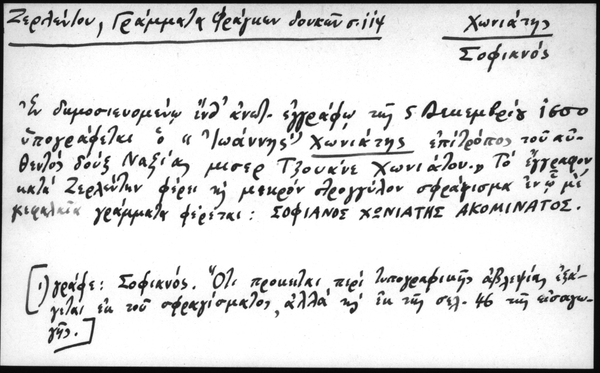 Ζερλέντου, Γράμματα Φράγκων δουκῶν σ. 114
Χωνιάτης
Σοφιανός
Ἐν δημοσιευομένῳ ἐνθ' ἀνωτ. ἐγγράφῳ τῆς 5 Δεκεμβρίου 1600
ὑπογράφεται ὁ « Ἰωάννης Χωνιάτης ἐπίτροπος τοῦ αὐ-
θεντὸς δοὺξ Ναξίας μισερ Τζουάνε Χωνιάτου.» Τὸ ἔγγραφον
κατὰ Ζερλέντην φέρει κὴ μικρὸν στρογγύλον σφράγισμα ἐν ᾧ μὲ
κεφαλαῖα γράμματα φέρεται: ΣΟΦΙΑΝΟΣ ΧΩΝΙΑΤΗΣ ΑΚΟΜΙΝΑΤΟΣ.
[1) γράφε: Σοφιανός. Ὅτι πρόκειται περὶ τυπογραφικῆς ἀβλεψίας ἐξά-
γεται ἐκ τοῦ σφραγίσματος, ἀλλὰ κὴ ἐκ τῆς σελ. 46 τῆς εἰσαγω-
γῆς.]